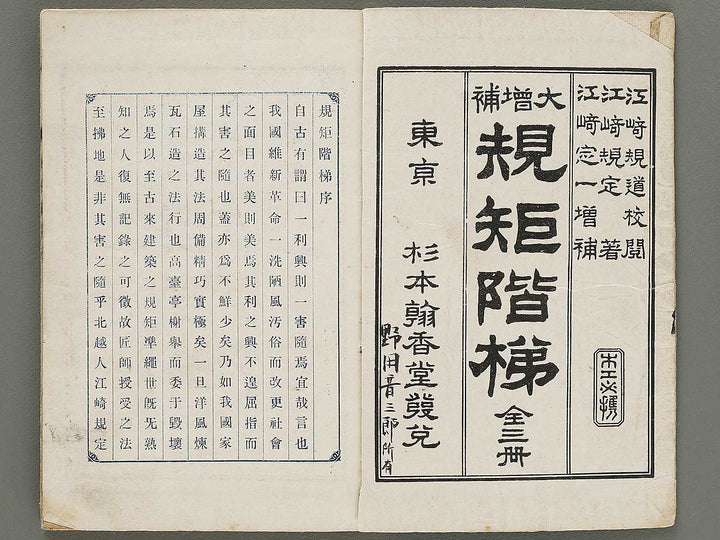 江﨑規道校閲
江﨑規定著
江﨑定一増補
木工必携
大増補
規矩階梯
全三冊
東京
杉本翰香堂發兌
野田音三郎所有
規矩階梯序
自古有謂曰一利興則一害隨焉宜哉言也
我國維新革命一洗陋風汚俗而改更社會
之面目者美則美焉其利之興不遑屈指而
其害之隨也蓋亦爲不鮮少矣乃如我國家
屋搆造其法周備精巧實極矣一旦洋風煉
瓦石造之法行也高臺亭榭擧而委于毀壞
焉是以至古來建築之規矩凖繩世旣旡熟
知之人復無記錄之可徵故匠師授受之法
至拂地是非其害之隨乎北越人江崎規定